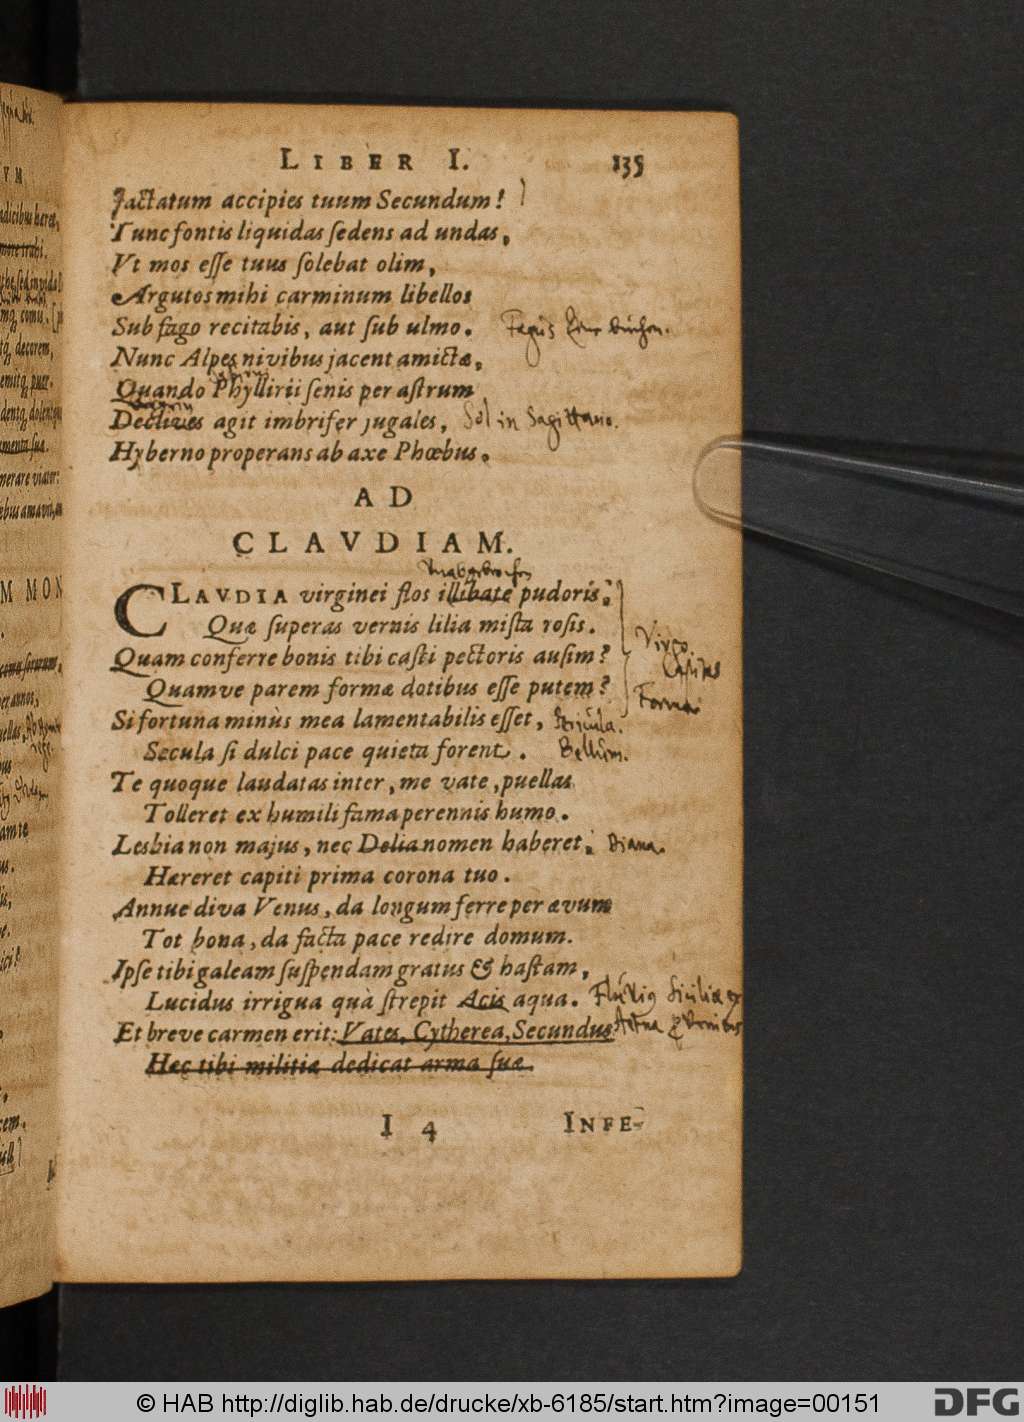 LIBER I. 135
Jactatum accipies tuum Secundum!
Tunc fontis liquidas ſedens ad undas,
Vt mos eſſe tuus ſolebat olim,
Argutos mihi carminum libellos
Sub fago recitabis, aut ſub ulmo. Fagus Eine buchen.
Nunc Alpes nivibus jacent amictæ,
Quando Phyllirii ſenis per aſtrum
Declives agit imbrifer jugales, Sol in Sagittario.
Hyberno properans ab axe Phœbus.
AD
CLAVDIAM.
CLAVDIA virginei flos illibate pudoris,
Quæ ſuperas vernis lilia miſta roſis.
Quam conferre bonis tibi caſti pectoris auſim? Virgo
Castitas
Quamve parem formæ dotibus eſſe putem? Forma
Si fortuna minùs mea lamentabilis eſſet,
Secula ſi dulci pace quieta forent. Bellum.
Te quoque laudatas inter, me vate, puellas
Tolleret ex humili fama perennis humo.
Lesbia non majus, nec Delia nomen haberet; Diana.
Hæreret capiti prima corona tuo.
Annue diva Venus, da longum ferre per ævum
Tot bona, da facta pace redire domum.
Ipſe tibi galeam ſuſpendam gratus & haſtam,
Lucidus irrigua quà ſtrepit Acis aqua. Fluviq Siciliæ ex
Et breve carmen erit: Vates, Cytherea, Secundus Aetna
Hæc tibi militiæ dedicat arma ſuæ.
I 4 INFE-
© HAB http://diglib.hab.de/drucke/xb-6185/start.htm?image=00151 DFG